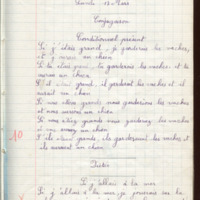 Conjugaison
Conditionnel présent
Si j'étais grand, je garderais les vaches,
j'aurais un chien
Si tu étais grand, tu garderais les vaches et tu
aurais un chien
Si il était grand, il garderait les vaches et il
aurait un chien
Si nous étions grands nous garderions les vaches et
nous aurions un chien
Si vous étiez grands vous garderiez les vaches et
vous auriez un chien
Si ils étaient grands, ils garderaient les vaches et
ils auraient un chien
10
Dictée
Si j'allais à la mer
Si j'allais à la mer, je